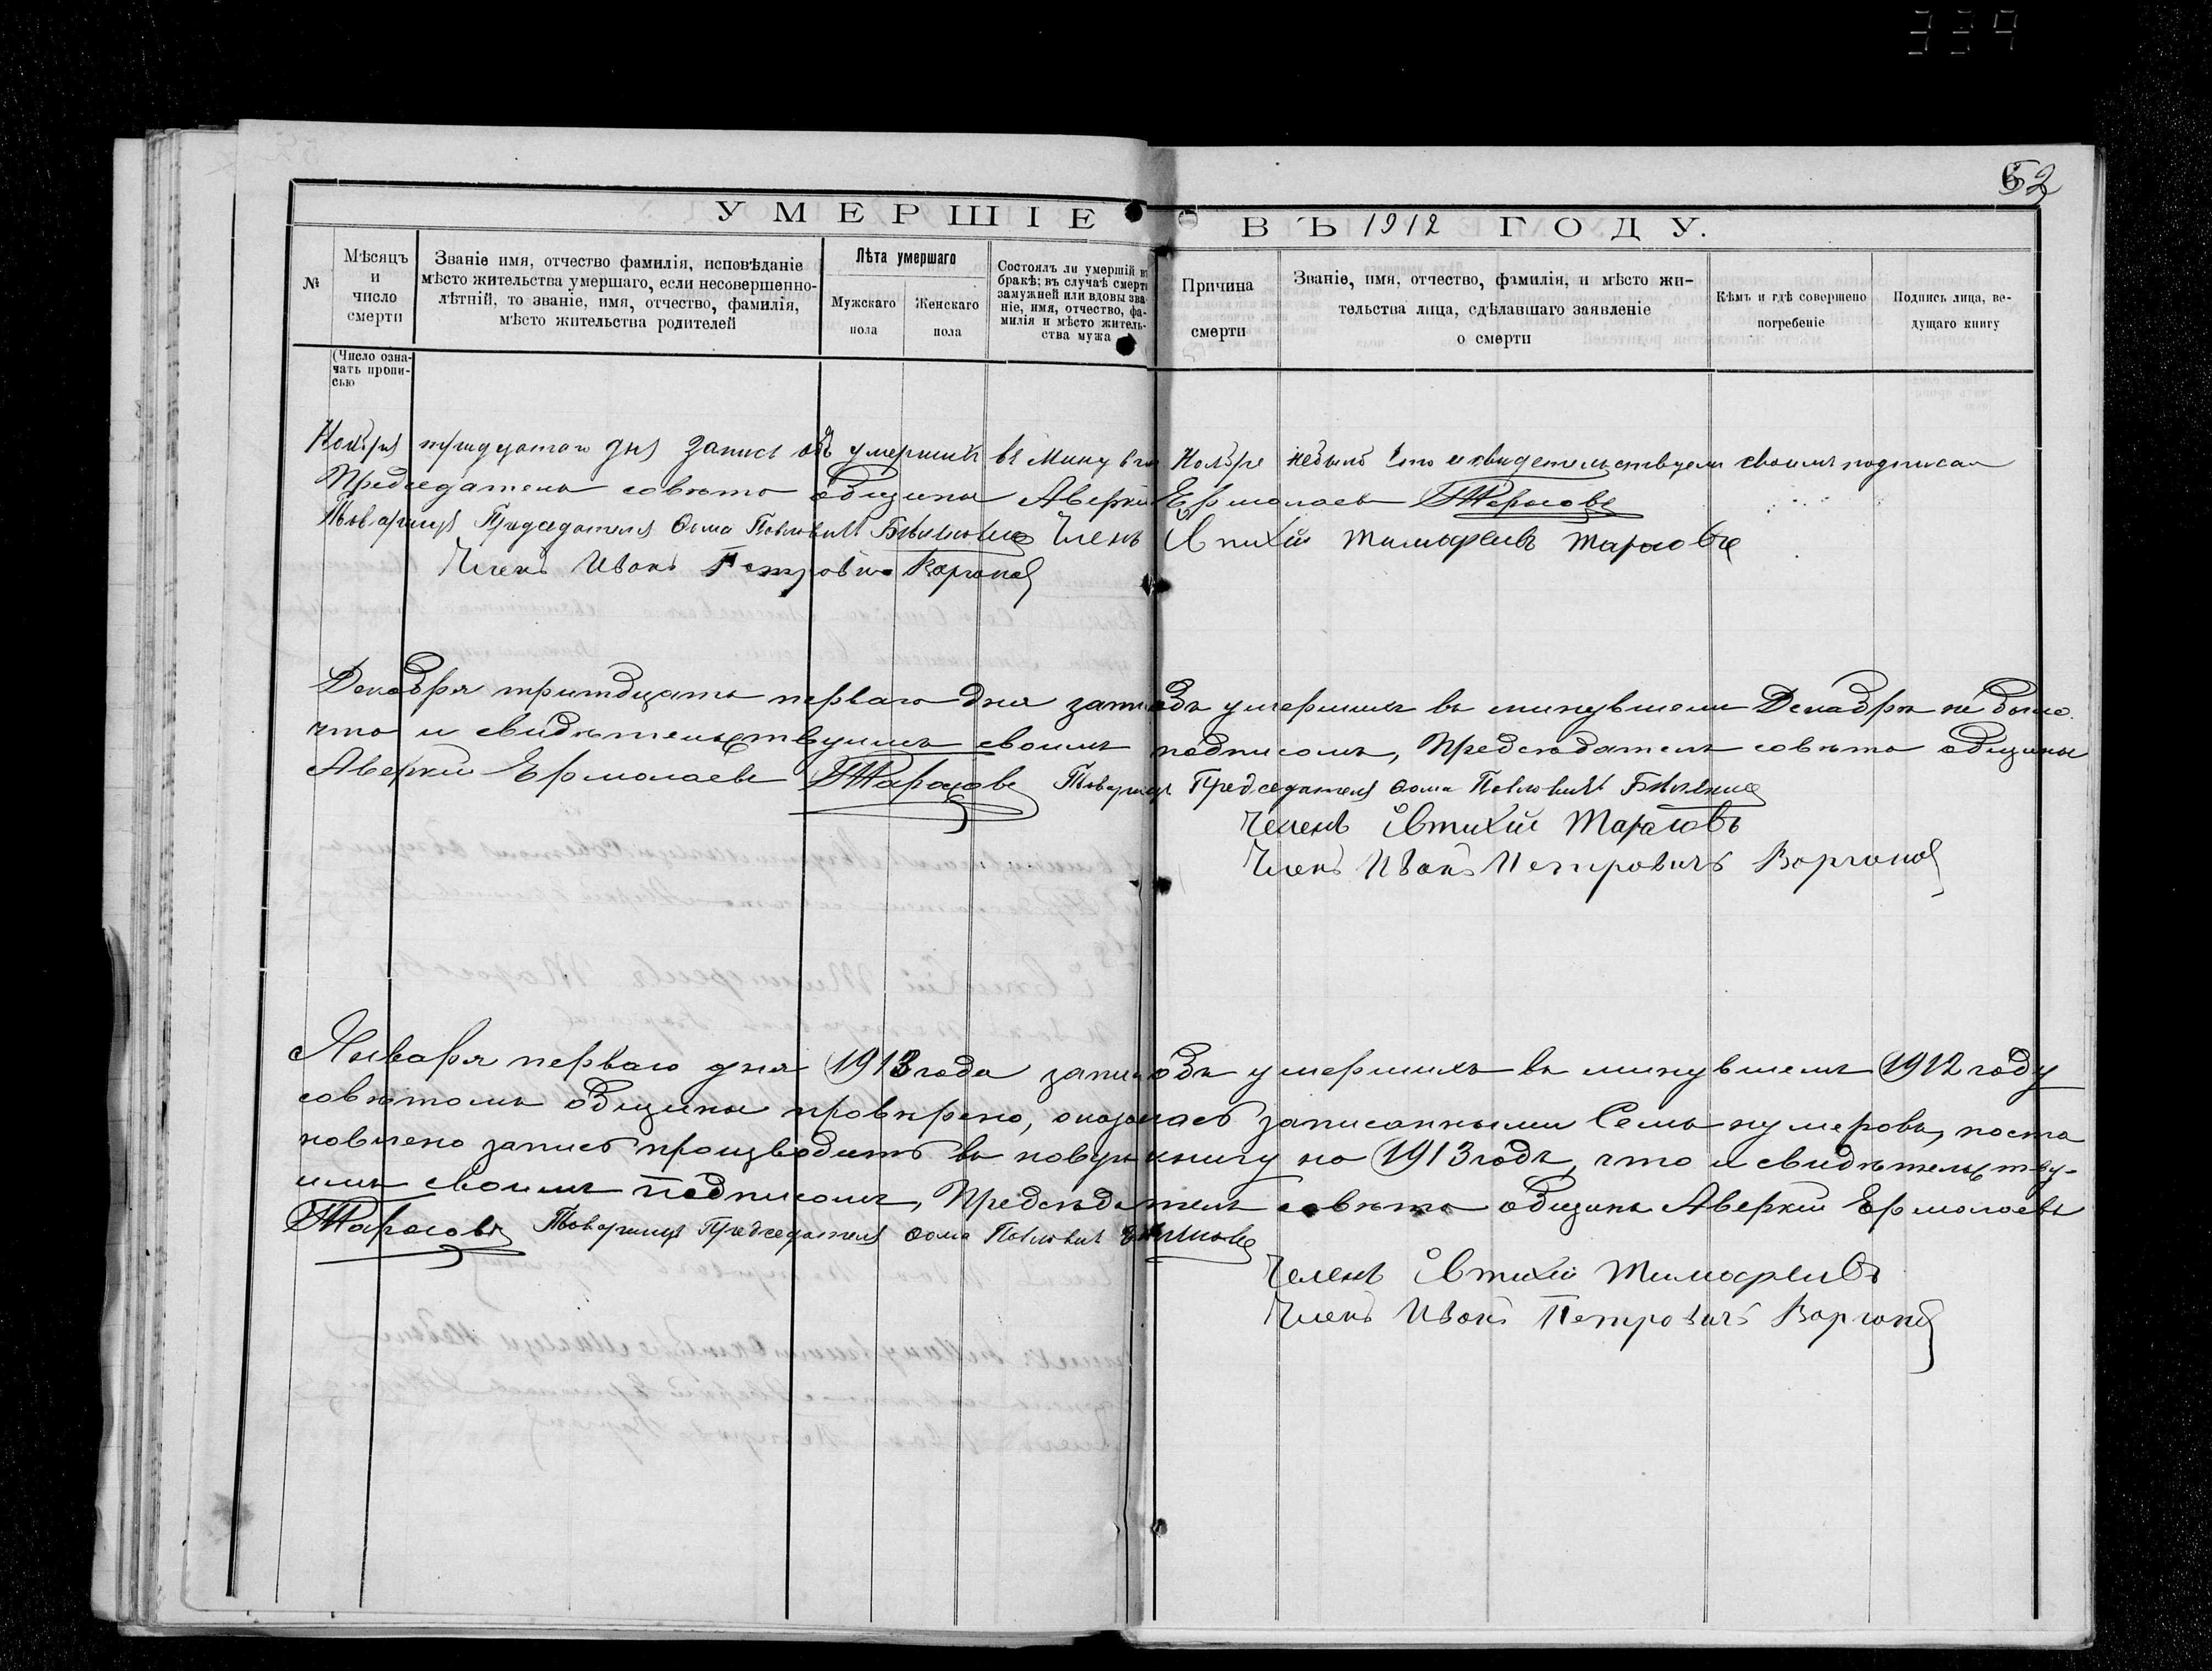 339
52
УМЕРШІЕ ВЪ 1912 ГОДУ.
№
Мѣсяцъ и число смерти
Званіе имя, отчество фамилія, исповѣданіе мѣсто жительства умершаго, если несовершеннолѣтній, то званіе, имя, отчество, фамилія, мѣсто жительства родителей
Лѣта умершаго
Мужскаго пола
Женскаго пола
Состоялъ ли умершій въ бракѣ; въ случаѣ смерти замужней или вдовы званіе, имя, отчество, фамилія и мѣсто жительства мужа
Причина смерти
Званіе, имя, отчество, фамилія, и мѣсто жительства лица, сдѣлавшаго заявленіе о смерти
Кѣмъ и гдѣ совершено погребеніе
Подпись лица, ведущаго книгу
(Число означать прописью
Ноября тридцатаго дня запись объ умершихъ въ Ноябре небыло что и свидетельствуем своим подписом
Председатель совѣта общины Аверкий Ермолаевъ Тарасовъ
Товарищъ Председателя Фома Павловичъ Членъ Тимофеивъ Тарасовъ
Членъ Иванъ Петровичъ
Декабря тритдцать перваго дня запись объ умершихъ въ минувшем Декабрѣ не было
что и свидѣтельствуимъ своимъ подписомъ, Предсѣдатель совѣта общины
Аверкий Ермолаевъ Тарасовъ Товарищъ Председателя Фома Павловичъ
Челенъ Івтихій Тарасовъ
Членъ Иванъ Петровичъ
Января перваго дня 1913 года запись объ умершихъ въ минувшемъ 1912 году
совѣтомъ общины провѣрено, оказалась записанными Семь нумеровъ, поста
новлено запись производить въ новую книгу на 1913 годъ, что и свидѣтельству-
имъ своимъ подписомъ, Предсѣдатель совѣта общины Аверкий Ермолаевъ
Тарасовъ Товарищъ Председателя Фома Павловичъ
Челенъ Івтихій Тимофеивъ
Членъ Иванъ Петровичъ